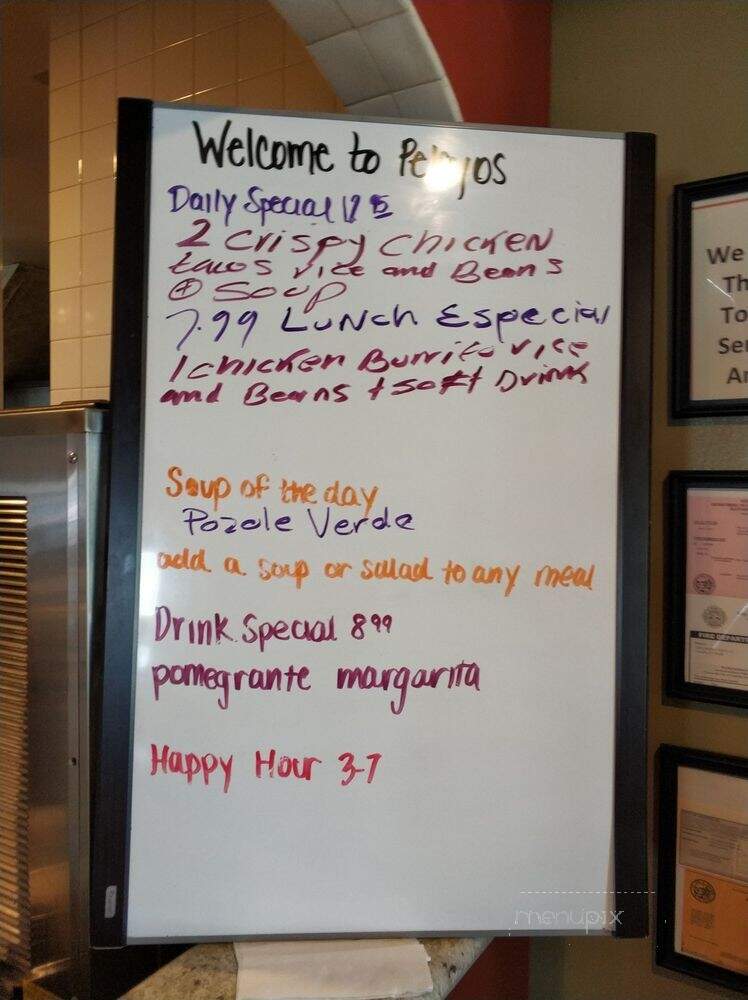 Welcome to
Daily Special 12
2 Crispy Chicken
tacos rice and Beans
+ Soup
7.99 Lunch Especial
1 chicken Burrito rice
and Beans + soft Drink
Soup of the day
Pozole Verde
add a soup or salad to any meal
Drink Special 8 99
pomegrante margarita
Happy Hour 3-7
We
Th
To
Ser
A
FIRE DEPART
menupix